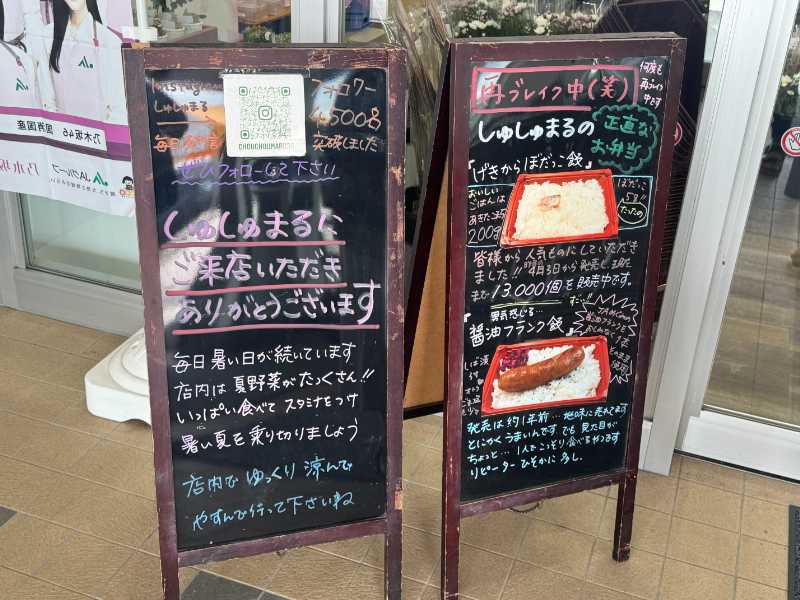 乃木坂46
国消国産
JAグループ
Instagram
しゅしゅまる
毎日発信
CHOUCHOUMARU
フォロワー
4500名
突破しました
ぜひフォローして下さい
しゅしゅまるに
ご来店いただき
ありがとうございます
毎日暑い日が続いています
店内は夏野菜がたっくさん!!
いっぱい食べてスタミナをつけ
暑い夏を乗り切りましょう
店内でゆっくり涼んで
やすんで行って下さいね
再ブレイク中(笑)
何度も
再ブレイク
中です
しゅしゅまるの
正直な
お弁当
『げきからぼだっこ飯』
おいしい
ごはんは
あきたこまち
200g
ぼだっこ
5g!!
たったの
皆様から人気ものにしていただき
ました!!
から発売し
まで13,000個を販売中です。
異気感じる…
醤油フランク飯』
醤油フランクを
1本
しば漬
発売は約1年前…地味に売れてます
とにかくうまいんです でも見た目が
ちょっと…1人でこっそり食べるやつです
リピーターひそかに多し.